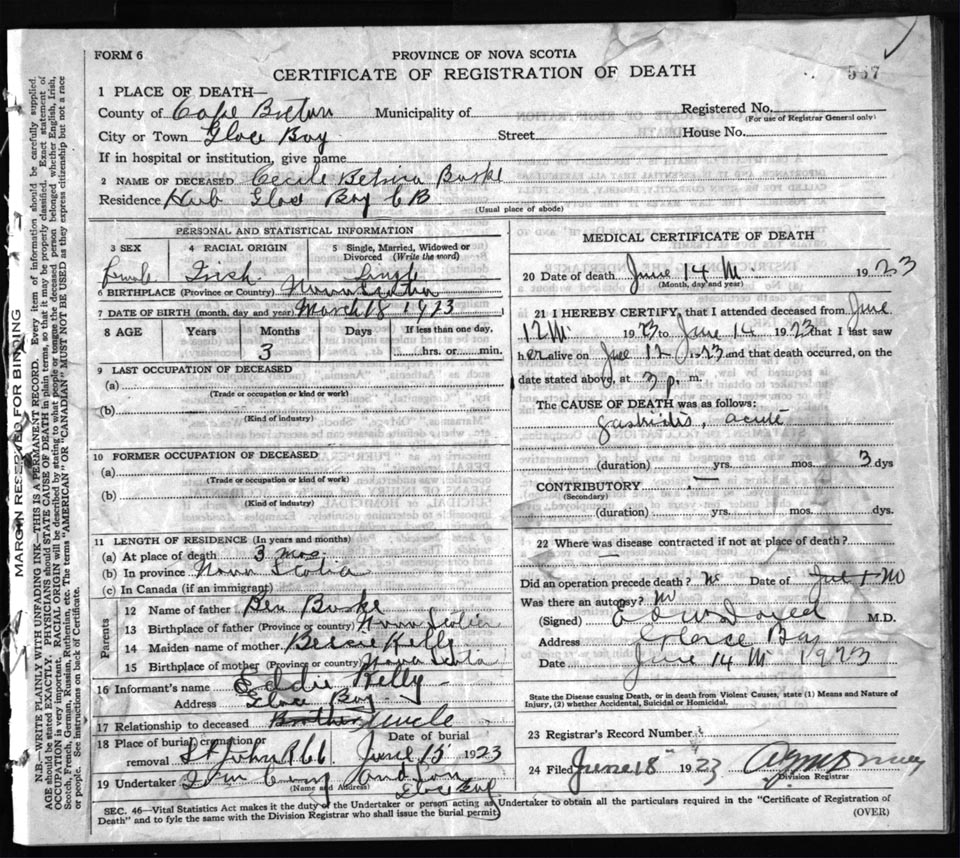 FORM 6
PROVINCE OF NOVA SCOTIA
CERTIFICATE OF REGISTRATION OF DEATH
567
1 PLACE OF DEATH—
County of Cape Breton Municipality of
Registered No.
(For use of Registrar General only)
City or Town Glace Bay Street House No.
If in hospital or institution, give name
2 NAME OF DECEASED Cecile Betsina Burke
Residence Hub Glace Bay C B
(Usual place of abode)
PERSONAL AND STATISTICAL INFORMATION
3 SEX 4 RACIAL ORIGIN 5 Single, Married, Widowed or Divorced (Write the word)
female Irish Single
6 BIRTHPLACE (Province or Country) Nova Scotia
7 DATE OF BIRTH (month, day and year) March 18 1923
8 AGE Years Months Days If less than one day,
3 hrs. or min.
9 LAST OCCUPATION OF DECEASED
(a)
(Trade or occupation or kind or work)
(b)
(Kind of industry)
10 FORMER OCCUPATION OF DECEASED
(a)
(Trade or occupation or kind of work)
(b)
(Kind of industry)
11 LENGTH OF RESIDENCE (In years and months)
(a) At place of death 3 mos
(b) In province Nova Scotia
(c) In Canada (if an immigrant)
Parents
12 Name of father Ben Burke
13 Birthplace of father (Province or country) Nova Scotia
14 Maiden name of mother Kelly
15 Birthplace of mother (Province or country) Nova Scotia
16 Informant's name Eddie Kelly
Address Glace Bay
17 Relationship to deceased Brother Uncle
18 Place of burial, cremation or removal Date of burial
St John June 15 1923
19 Undertaker and Son
(Name and Address) Glace Bay
MEDICAL CERTIFICATE OF DEATH
20 Date of death June 14 1923
(Month, day and year)
21 I HEREBY CERTIFY, that I attended deceased from June
12 1923 to June 14 1923 that I last saw
her alive on June 12 1923 and that death occurred, on the
date stated above, at 3 p. m.
The CAUSE OF DEATH was as follows:
gastritis, acute
(duration) yrs. mos. 3 dys
CONTRIBUTORY —
(Secondary)
(duration) yrs. mos. dys.
22 Where was disease contracted if not at place of death?
—
Did an operation precede death? no Date of
Was there an autopsy? no
(Signed) M.D.
Address Glace Bay
Date June 14 1923
State the Disease causing Death, or in death from Violent Causes, state (1) Means and Nature of
Injury, (2) whether Accidental, Suicidal or Homicidal.
23 Registrar's Record Number
24 Filed June 18 1923
Division Registrar
SEC. 46—Vital Statistics Act makes it the duty of the Undertaker or person acting as Undertaker to obtain all the particulars required in the "Certificate of Registration of
Death" and to fyle the same with the Division Registrar who shall issue the burial permit.
(OVER)
MARGIN RESERVED FOR BINDING
N.B.—WRITE PLAINLY WITH UNFADING INK—THIS IS A PERMANENT RECORD. Every item of information should be carefully supplied.
AGE should be stated EXACTLY. PHYSICIANS should STATE CAUSE OF DEATH in plain terms, so that it may be properly classified. Exact statement of
OCCUPATION is very important. RACIAL ORIGIN will be described by stating to what people or tongue the deceased person belonged whether English, Irish,
Scotch, French, German, Russian, Ruthenian, etc. The terms "AMERICAN" OR "CANADIAN" MUST NOT BE USED as they express citizenship but not a race
or people. See instructions on back of Certificate.